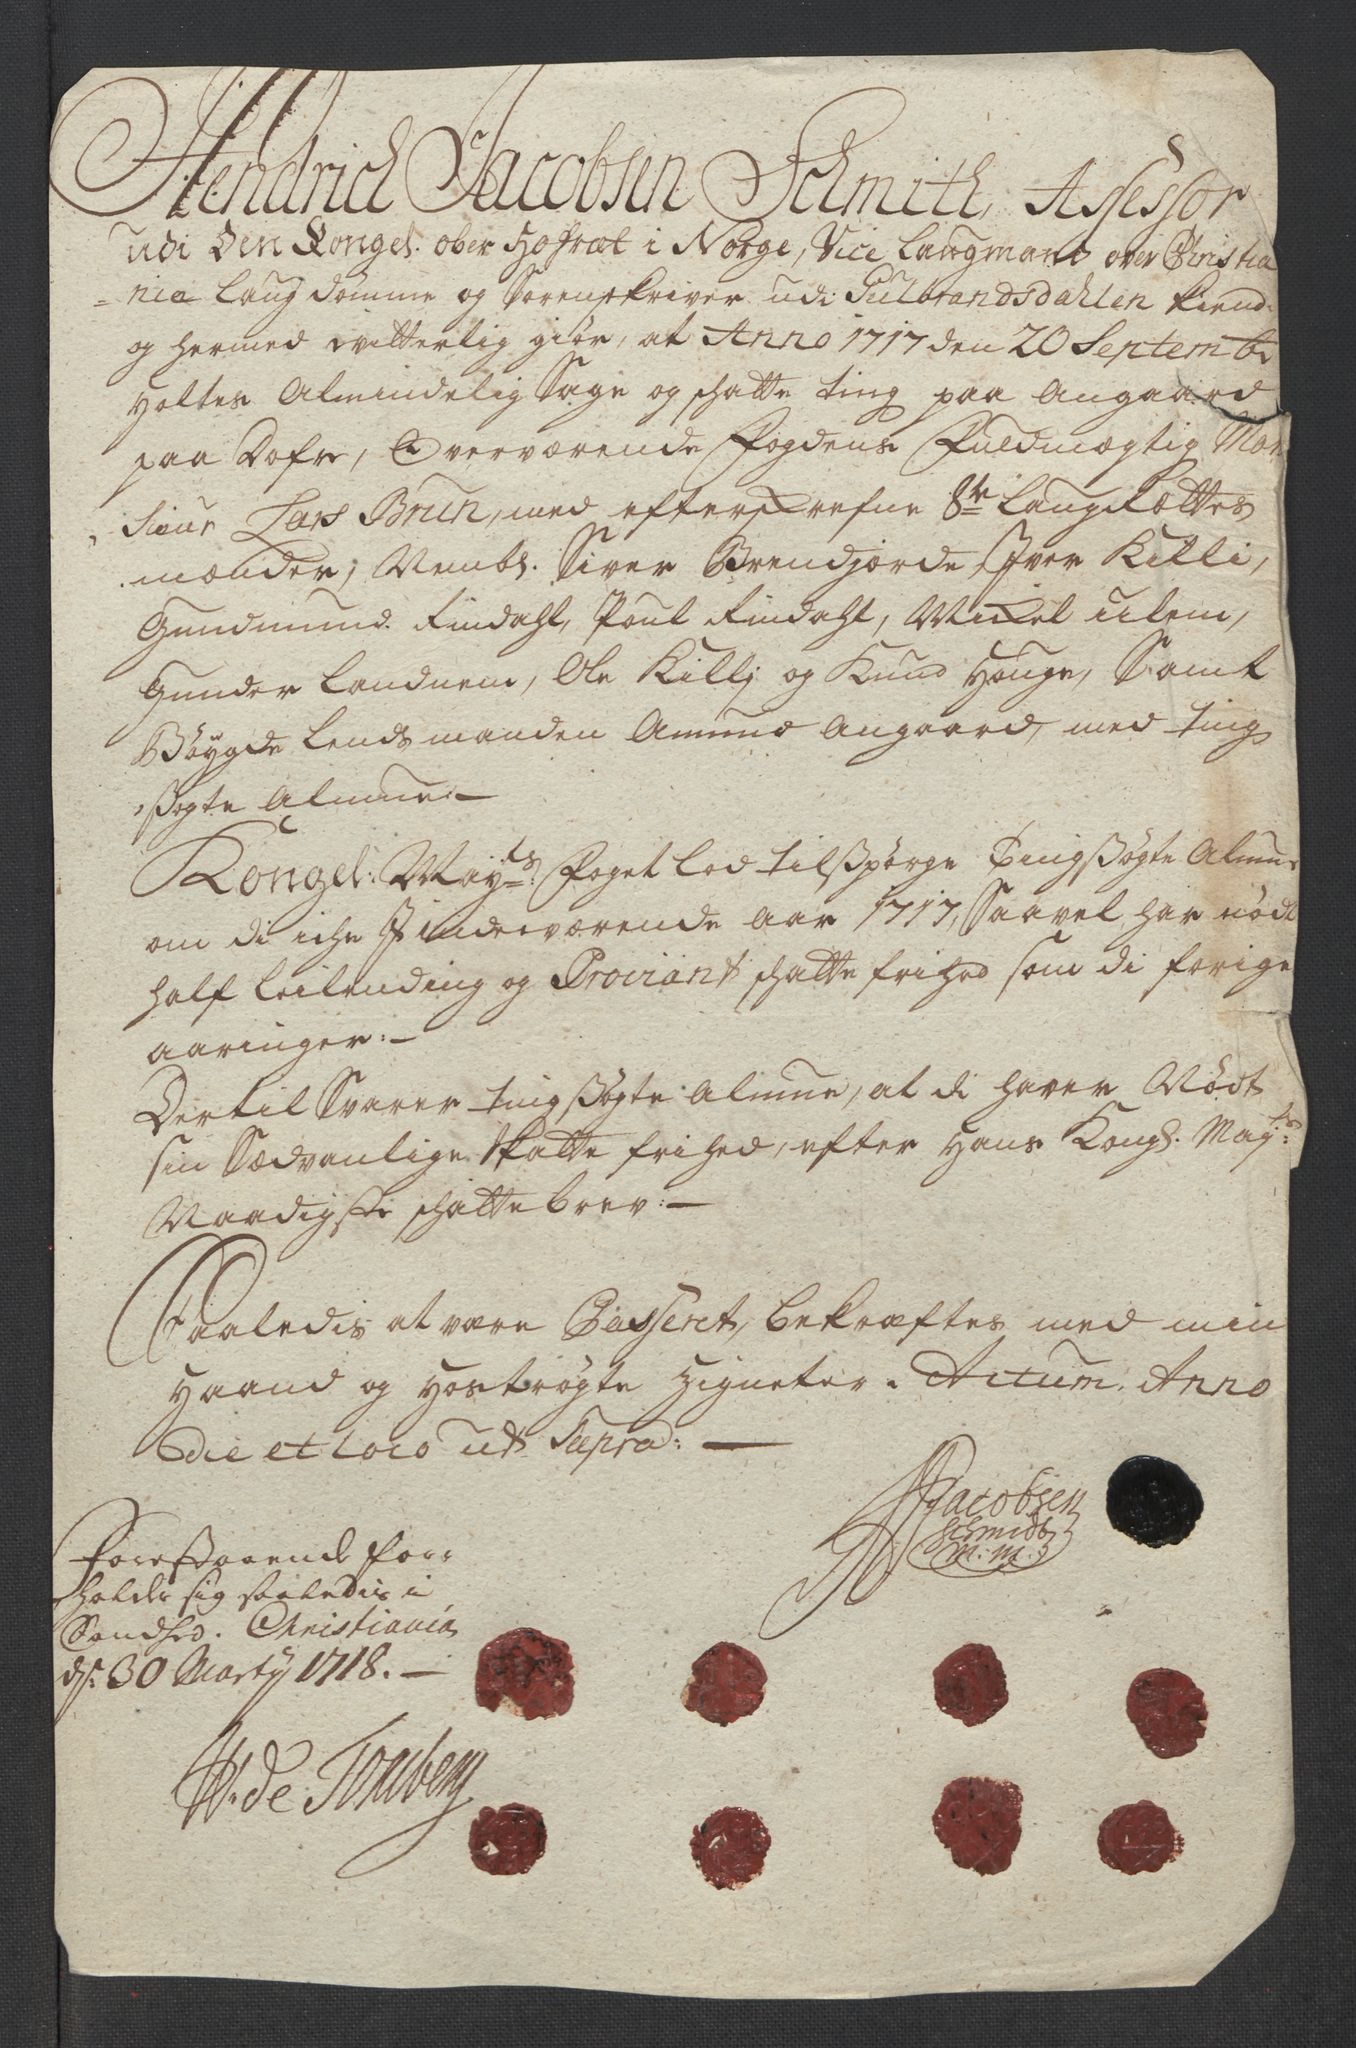 Hendrich Jacobsen Schmith, Assessor
udi Den Kongel. ober Hofræt i Norge, Vice Laugmand over Christia
-nia Laugdømme og Sorenskriver udi Gulbrandsdahlen kiend-
og hermed witterlig giør, at Anno 1717 den 20 Septemb:
Holtes Almindelig Sage og schatte ting paa Angaard
paa Dofre, Overværende Fogdens Fuldmægtig Mon
sieur Lars Brun, med efterschrefne 8te Laugrættes
mænder, Nembl. Siver Brendjorde, Iver Killi,
Gundmund Findahl, Poul Findahl, Michel Ulem,
Gunder Landnem, Ole Killj og Knud Houge, Samt
Bøygde Lendsmanden Amund Angaard, med ting
søgte Almue:—
Kongel: Mayts: Foget lod tilspørge Tingsøgte Almue
om di iche Indeværende aar 1717, Saavel har nødt
half Leilending og Proviant schatte frihed som di forige
aaringer:—
Dertil Svarer tingsøgte Almue, at di haver Nødt
sin Sædvanlige Skatte frihed, efter Hans Kongl. Mayts:
Naadigste schatte brev:—
Saaledis at være Passeret, bekræftes med min
Haand og Hostrøgte Zigneter. Actum Anno
die et loco ut Supra:—
HJacobsen
Schmidt
M: M:
Forestaaende for-
holder sig saaledis i
Sandhed. Christiania
ds: 30 Marty 1718.—
W. de Tonsberg